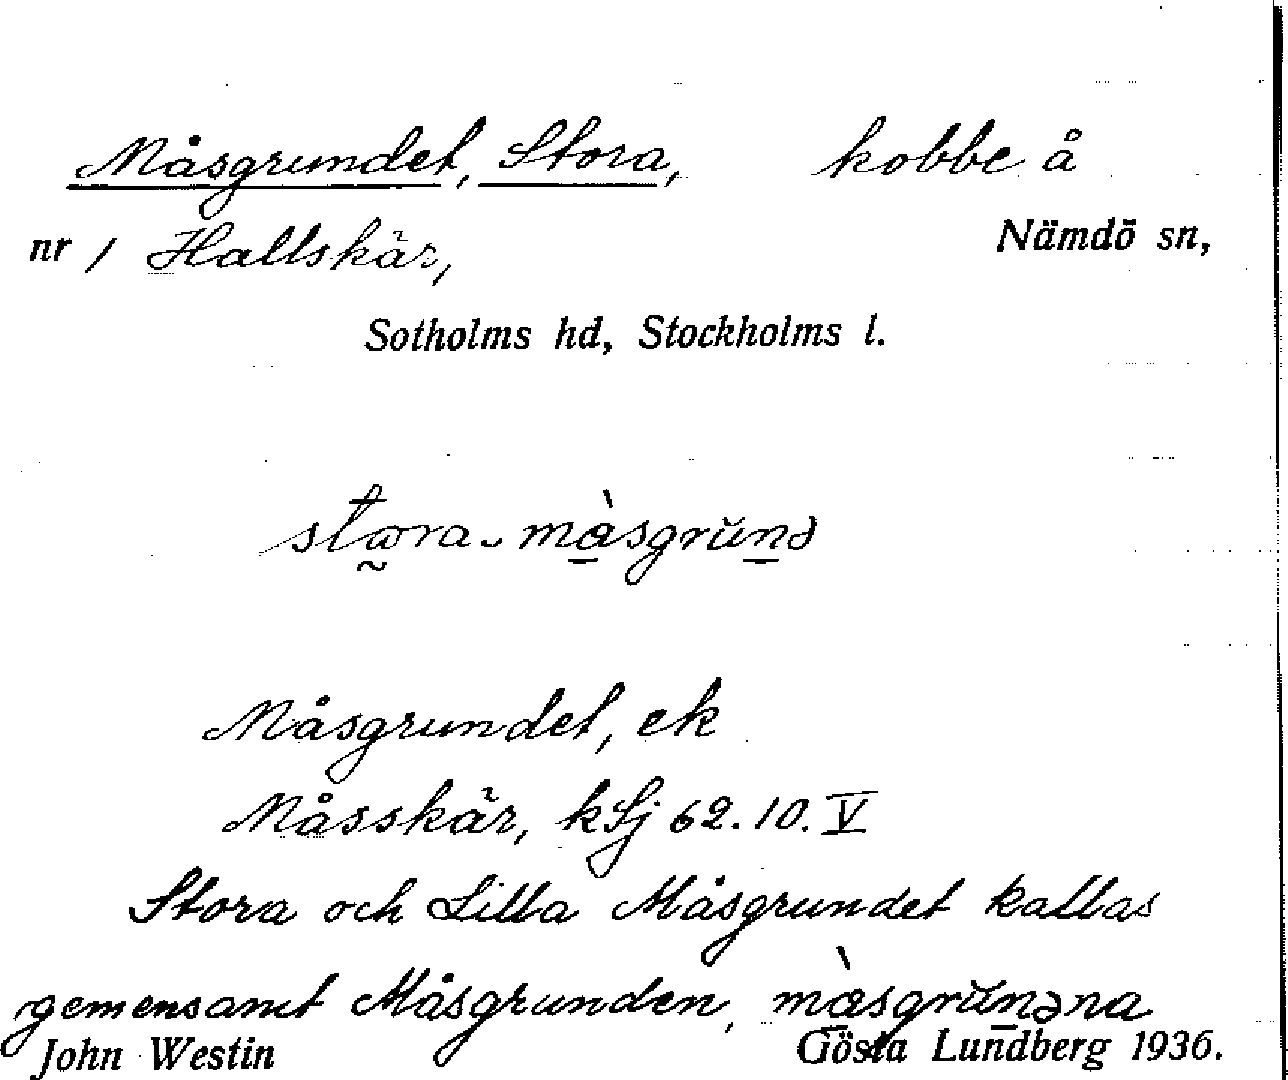 Måsgrundet, Stora, kobbe å
nr 1 Hallskär, Nämdö sn,
Sotholms hd, Stockholms l.
stɷra-màsgrŭnd
Måsgrundet, ek
Måsskär, kSj 62.10.V
Stora och Lilla Måsgrundet kallas
gemensamt Måsgrunden, màsgrŭnəna
John Westin Gösta Lundberg 1936.